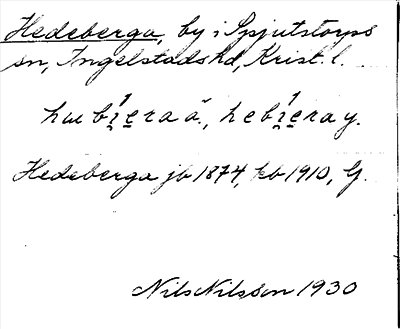 Hedeberga, by i Spjutstorps
sn, Ingelstads hd, Krist. l.
hebɪ̯e̤ra y.
Hedeberga jb 1874, kb 1910, G.
Nils Nilsson 1930